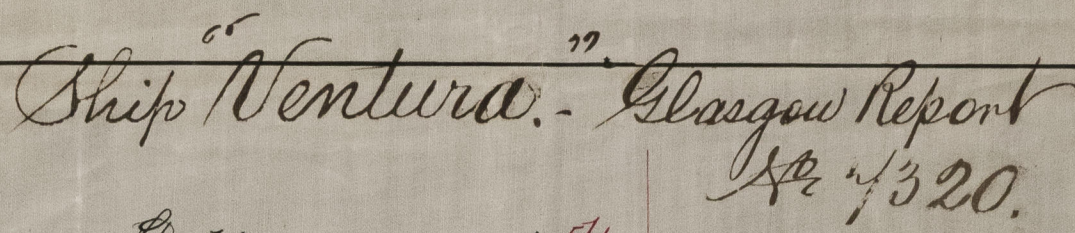 Ship "Ventura". - Glasgow Report
No 7320.